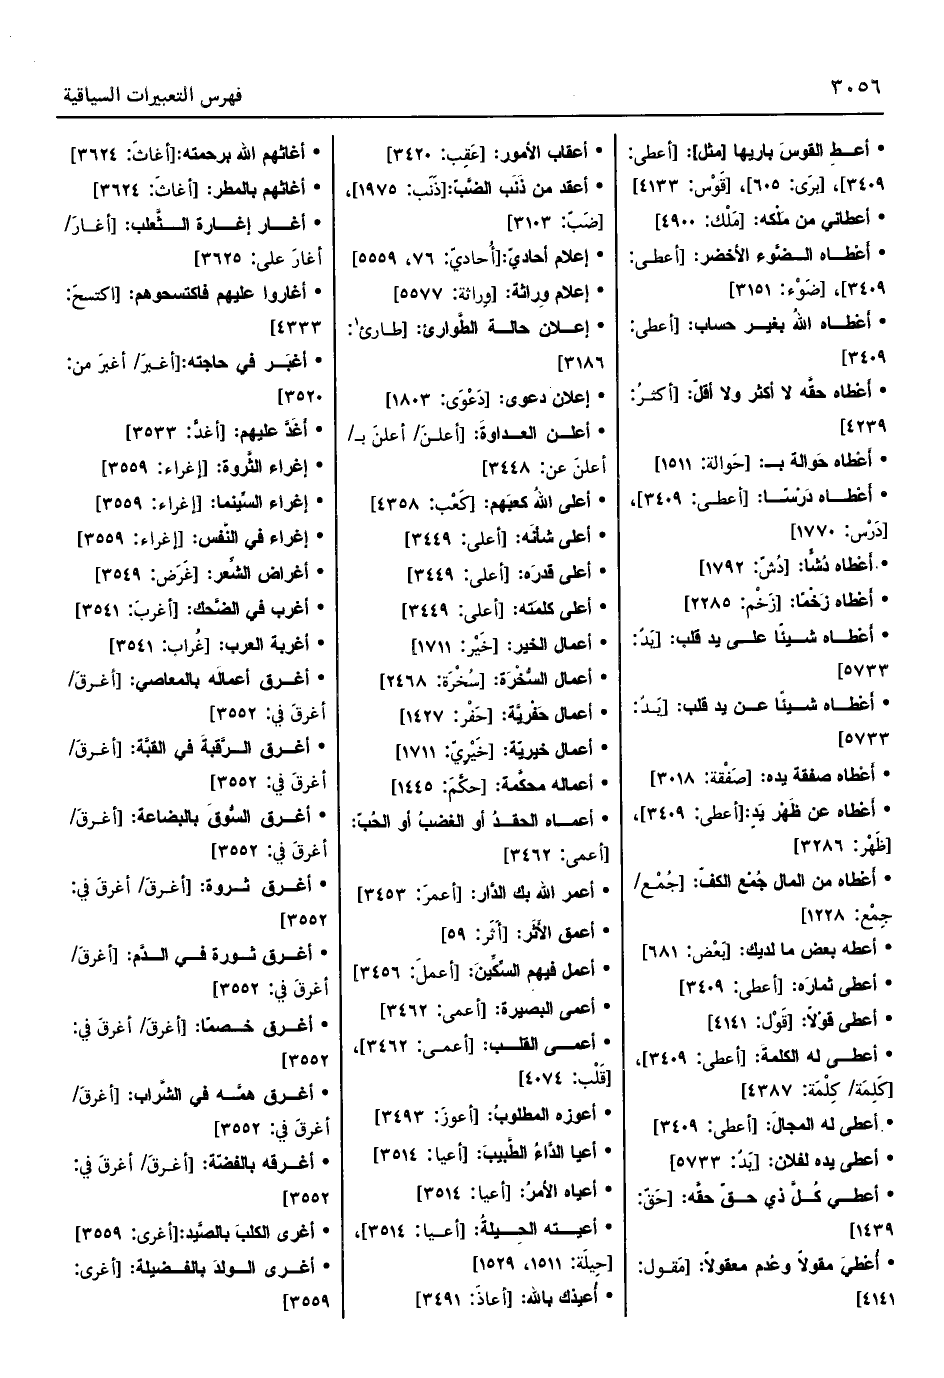 ٣٠٥٦
فهرس التعبيرات السياقية
• أعـط القوسَ باريها [مثل]: [أعطى:
٣٤٠٩]، [بَرَى: ٦٠٥]، [قَوْس: ٤١٣٣]
• أعطاني من ملْكه: [مَلْك: ٤٩٠٠]
• أَعْطــاه الــضَّوء الأخضر: [أعطـى:
٣٤٠٩]، [ضَوْء: ٣١٥١]
• أَعْطــاه اللهُ بغيــر حساب: [أعطى:
٣٤٠٩]
• أَعْطاه حقَّه لا أكثر ولا أقلّ: [أكثـرُ:
٤٢٣٩]
• أَعْطاه حَوالة بـ: [حَوالة: ١٥١١]
• أَعْطــاه دَرْسًــا: [أعطـى: ٣٤٠٩]،
[دَرْس: ١٧٧٠]
• أَعْطاه دُشًّا: [دُشّ: ١٧٩٢]
• أَعْطاه زَخْمًا: [زَخْم: ٢٢٨٥]
• أَعْطــاه شـيئًا علــى يد قلب: [يَدٌ:
٥٧٣٣]
• أَعْطــاه شــيئًا عــن يد قلب: [يَـدٌ:
٥٧٣٣]
• أَعْطاه صفقة يده: [صَفْقة: ٣٠١٨]
• أَعْطاه عن ظَهْر يَدٍ:[أعطى: ٣٤٠٩]،
[ظَهْر: ٣٢٨٦]
• أَعْطاه من المال جُمْع الكفّ: [جُمْع/
جِمْع: ١٢٢٨]
• أعطه بعض ما لديك: [بَعْض: ٦٨١]
• أعطى ثمارَه: [أعطى: ٣٤٠٩]
• أعطى قوْلاً: [قَوْل: ٤١٤١]
• أعطــى له الكلمةَ: [أعطى: ٣٤٠٩]،
[كَلِمَة/ كِلْمَة: ٤٣٨٧]
• أعطى له المجالَ: [أعطى: ٣٤٠٩]
• أعطى يده لفلان: [يَدٌ: ٥٧٣٣]
• أعطــي كُــلَّ ذي حــقّ حقَّه: [حَقّ:
١٤٣٩]
• أُعْطيَ مقولاً وعُدم معقولاً: [مَقـول:
٤١٤١]
• أعقاب الأمور: [عَقِب: ٣٤٢٠]
• أعقد من ذَنَب الضَّبّ:[ذَنَب: ١٩٧٥]،
[ضَبّ: ٣١٠٣]
• إعلام أحاديّ:[أُحاديّ: ٧٦، ٥٥٥٩]
• إعلام وراثة: [وِراثة: ٥٥٧٧]
• إعــلان حالــة الطَّوارئ: [طـارئ١:
٣١٨٦]
• إعلان دعوى: [دَعْوَى: ١٨٠٣]
• أعلــن العــداوةَ: [أعلـنَ/ أعلنَ بـ/
أعلنَ عن: ٣٤٤٨]
• أعلى اللهُ كعبَهم: [كَعْب: ٤٣٥٨]
• أعلى شأنَه: [أعلى: ٣٤٤٩]
• أعلى قدرَه: [أعلى: ٣٤٤٩]
• أعلى كلمتَه: [أعلى: ٣٤٤٩]
• أعمال الخير: [خَيْر: ١٧١١]
• أعمال السُّخْرَة: [سُخْرَة: ٢٤٦٨]
• أعمال حَفْريَّة: [حَفْر: ١٤٢٧]
• أعمال خيريّة: [خَيْرِيّ: ١٧١١]
• أعماله محكَّمة: [حكَّمَ: ١٤٤٥]
• أعمــاه الحقــدُ أو الغضبُ أو الحُبّ:
[أعمى: ٣٤٦٢]
• أعمر الله بك الدَّار: [أعمرَ: ٣٤٥٣]
• أعمق الأَثَر: [أَثَر: ٥٩]
• أعمل فيهم السِّكِّينَ: [أعملَ: ٣٤٥٦]
• أعمى البصيرة: [أعمى: ٣٤٦٢]
• أعمــى القلــب: [أعمـى: ٣٤٦٢]،
[قَلْب: ٤٠٧٤]
• أعوزه المطلوبُ: [أعوزَ: ٣٤٩٣]
• أعيا الدَّاءُ الطَّبيبَ: [أعيا: ٣٥١٤]
• أعياه الأمرُ: [أعيا: ٣٥١٤]
• أعيــته الحــيلةُ: [أعـيـا: ٣٥١٤]،
[حِيلَة: ١٥١١، ١٥٢٩]
• أُعيذك بالله: [أعاذَ: ٣٤٩١]
• أغاثهم الله برحمته:[أغاثَ: ٣٦٢٤]
• أغاثهم بالمطر: [أغاثَ: ٣٦٢٤]
• أغــار إغــارة الــثَّعلب: [أغـارَ/
أغارَ على: ٣٦٢٥]
• أغاروا عليهم فاكتسحوهم: [اكتسحَ:
٤٣٣٣]
• أغبَــر في حاجته:[أغبـرَ/ أغبرَ من:
٣٥٢٠]
• أغَذَّ عليهم: [أغذَّ: ٣٥٣٣]
• إغراء الثَّروة: [إغراء: ٣٥٥٩]
• إغراء السِّينما: [إغراء: ٣٥٥٩]
• إغراء في النَّفس: [إغراء: ٣٥٥٩]
• أغراض الشِّعر: [غَرَض: ٣٥٤٩]
• أغرب في الضَّحك: [أغربَ: ٣٥٤١]
• أغربة العرب: [غُراب: ٣٥٤١]
• أغــرق أعمالَه بالمعاصي: [أغـرقَ/
أغرقَ في: ٣٥٥٢]
• أغــرق الــرَّقبةَ في القبَّة: [أغـرقَ/
أغرقَ في: ٣٥٥٢]
• أغــرق السُّوقَ بالبضاعة: [أغـرقَ/
أغرقَ في: ٣٥٥٢]
• أغــرق ثــروة: [أغـرقَ/ أغرقَ في:
٣٥٥٢]
• أغــرق ثــورة فــي الــدَّم: [أغرقَ/
أغرقَ في: ٣٥٥٢]
• أغــرق خــصمًا: [أغرقَ/ أغرقَ في:
٣٥٥٢]
• أغــرق همَّــه في الشَّراب: [أغرقَ/
أغرقَ في: ٣٥٥٢]
• أغــرقه بالفضّة: [أغـرقَ/ أغرقَ في:
٣٥٥٢]
• أغرى الكلبَ بالصَّيد:[أغرى: ٣٥٥٩]
• أغــرى الــولدَ بالفــضيلة: [أغرى:
٣٥٥٩]